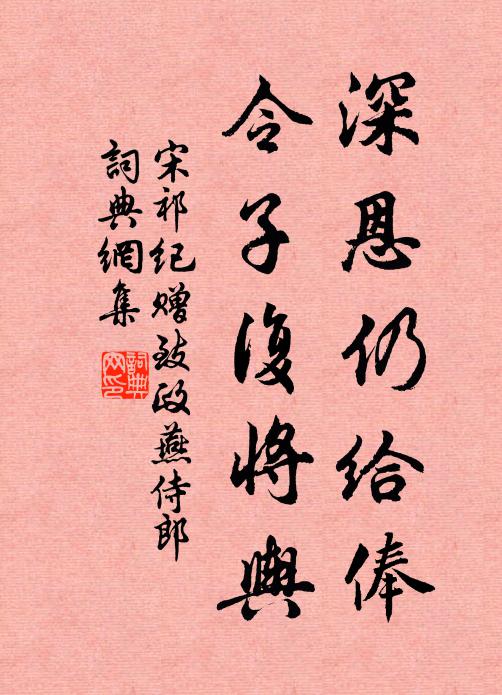 深恩仍给俸
令子復将輿
宋祁纪赠致政燕侍郎
詞典網集
詞典網印